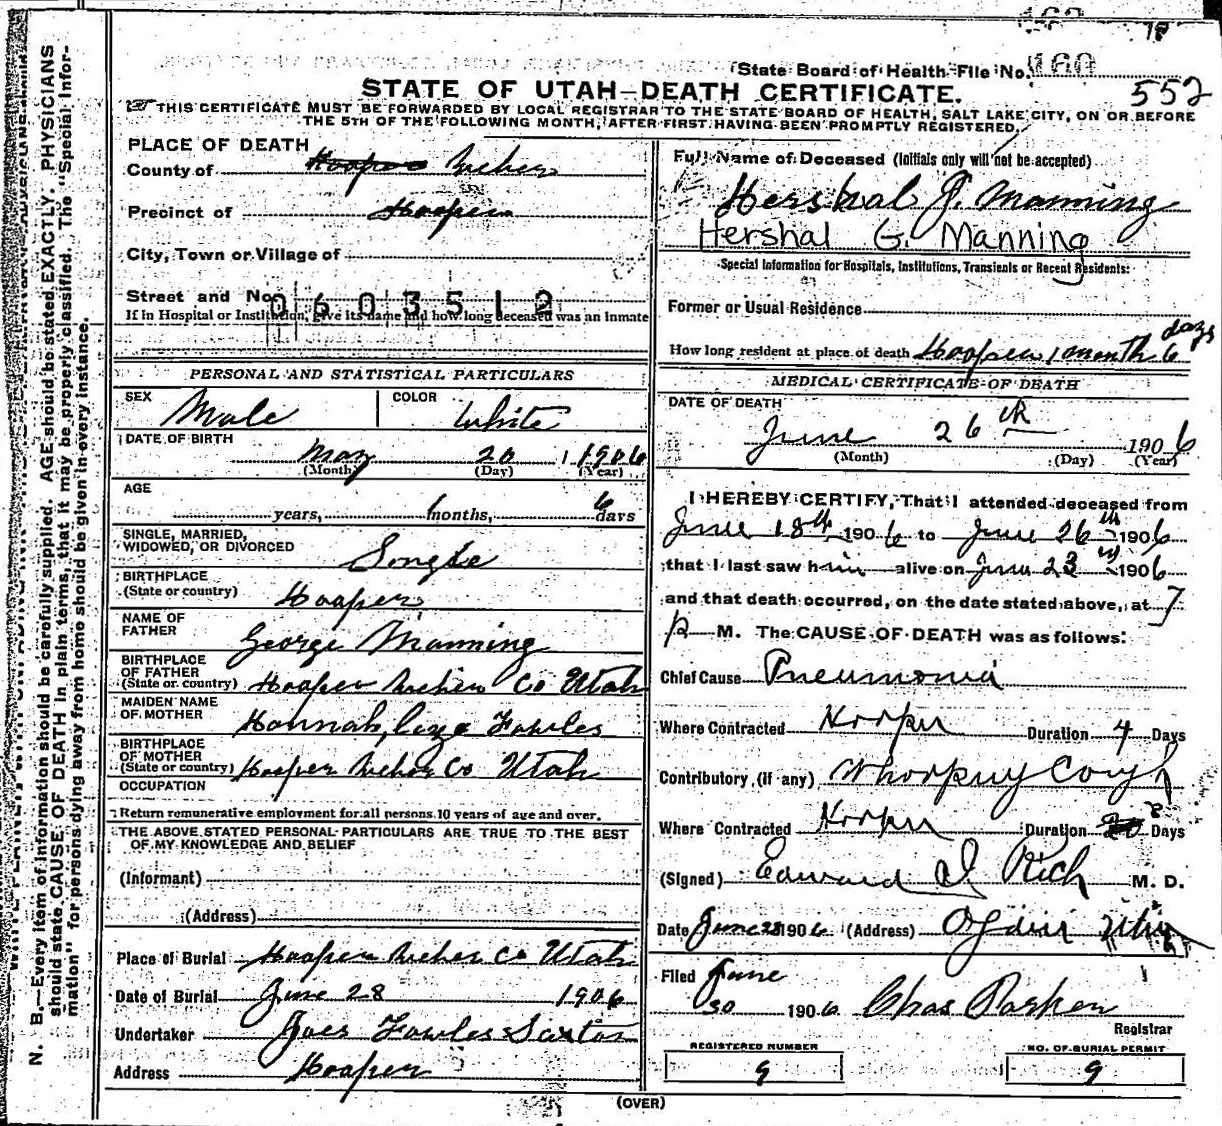 160
State Board of Health File No.
552
STATE OF UTAH—DEATH CERTIFICATE.
THIS CERTIFICATE MUST BE FORWARDED BY LOCAL REGISTRAR TO THE STATE BOARD OF HEALTH, SALT LAKE CITY, ON OR BEFORE
THE 5TH OF THE FOLLOWING MONTH, AFTER FIRST HAVING BEEN PROMPTLY REGISTERED.
N. B.—Every item of information should be carefully supplied. AGE should be stated EXACTLY. PHYSICIANS
should state CAUSE OF DEATH in plain terms, that it may be properly classified. The "Special Infor-
mation" for persons dying away from home should be given in every instance.
PLACE OF DEATH
County of Hooper Weber
Precinct of Hooper
City, Town or Village of
Street and No.
0603512
If in Hospital or Institution, give its name and how long deceased was an inmate
PERSONAL AND STATISTICAL PARTICULARS
SEX Male COLOR White
DATE OF BIRTH
May 20 1906
(Month) (Day) (Year)
AGE
years, 1 months, 6 days
SINGLE, MARRIED,
WIDOWED, OR DIVORCED Songle
BIRTHPLACE
(State or country) Hooper
NAME OF
FATHER George Manning
BIRTHPLACE
OF FATHER
(State or country) Hooper Weber Co Utah
MAIDEN NAME
OF MOTHER Hannah Fowles
BIRTHPLACE
OF MOTHER
(State or country) Hooper Weber Co Utah
OCCUPATION
Return remunerative employment for all persons 10 years of age and over.
THE ABOVE STATED PERSONAL PARTICULARS ARE TRUE TO THE BEST
OF MY KNOWLEDGE AND BELIEF
(Informant)
(Address)
Place of Burial Hooper Weber Co Utah
Date of Burial June 28 1906
Undertaker Fowles Sexton
Address Hooper
Full Name of Deceased (Initials only will not be accepted)
Hershal G. Manning
Hershal G. Manning
Special Information for Hospitals, Institutions, Transients or Recent Residents:
Former or Usual Residence
How long resident at place of death Hooper 1 month 6 days
MEDICAL CERTIFICATE OF DEATH
DATE OF DEATH
June 26 th 1906
(Month) (Day) (Year)
I HEREBY CERTIFY, That I attended deceased from
June 18th 1906 to June 26th 1906
that I last saw him alive on June 23rd 1906
and that death occurred, on the date stated above, at 7
P M. The CAUSE OF DEATH was as follows:
Chief Cause Pneumonia
Where Contracted Hooper Duration 4 Days
Contributory (if any) Whoopuy Cough
Where Contracted Hooper Duration Days
(Signed) Edward I Rich M. D.
Date June 28 1906 (Address) Ogden Utah
Filed June
30 1906 Chas Parker
Registrar
REGISTERED NUMBER
9
NO. OF BURIAL PERMIT
9
(OVER)